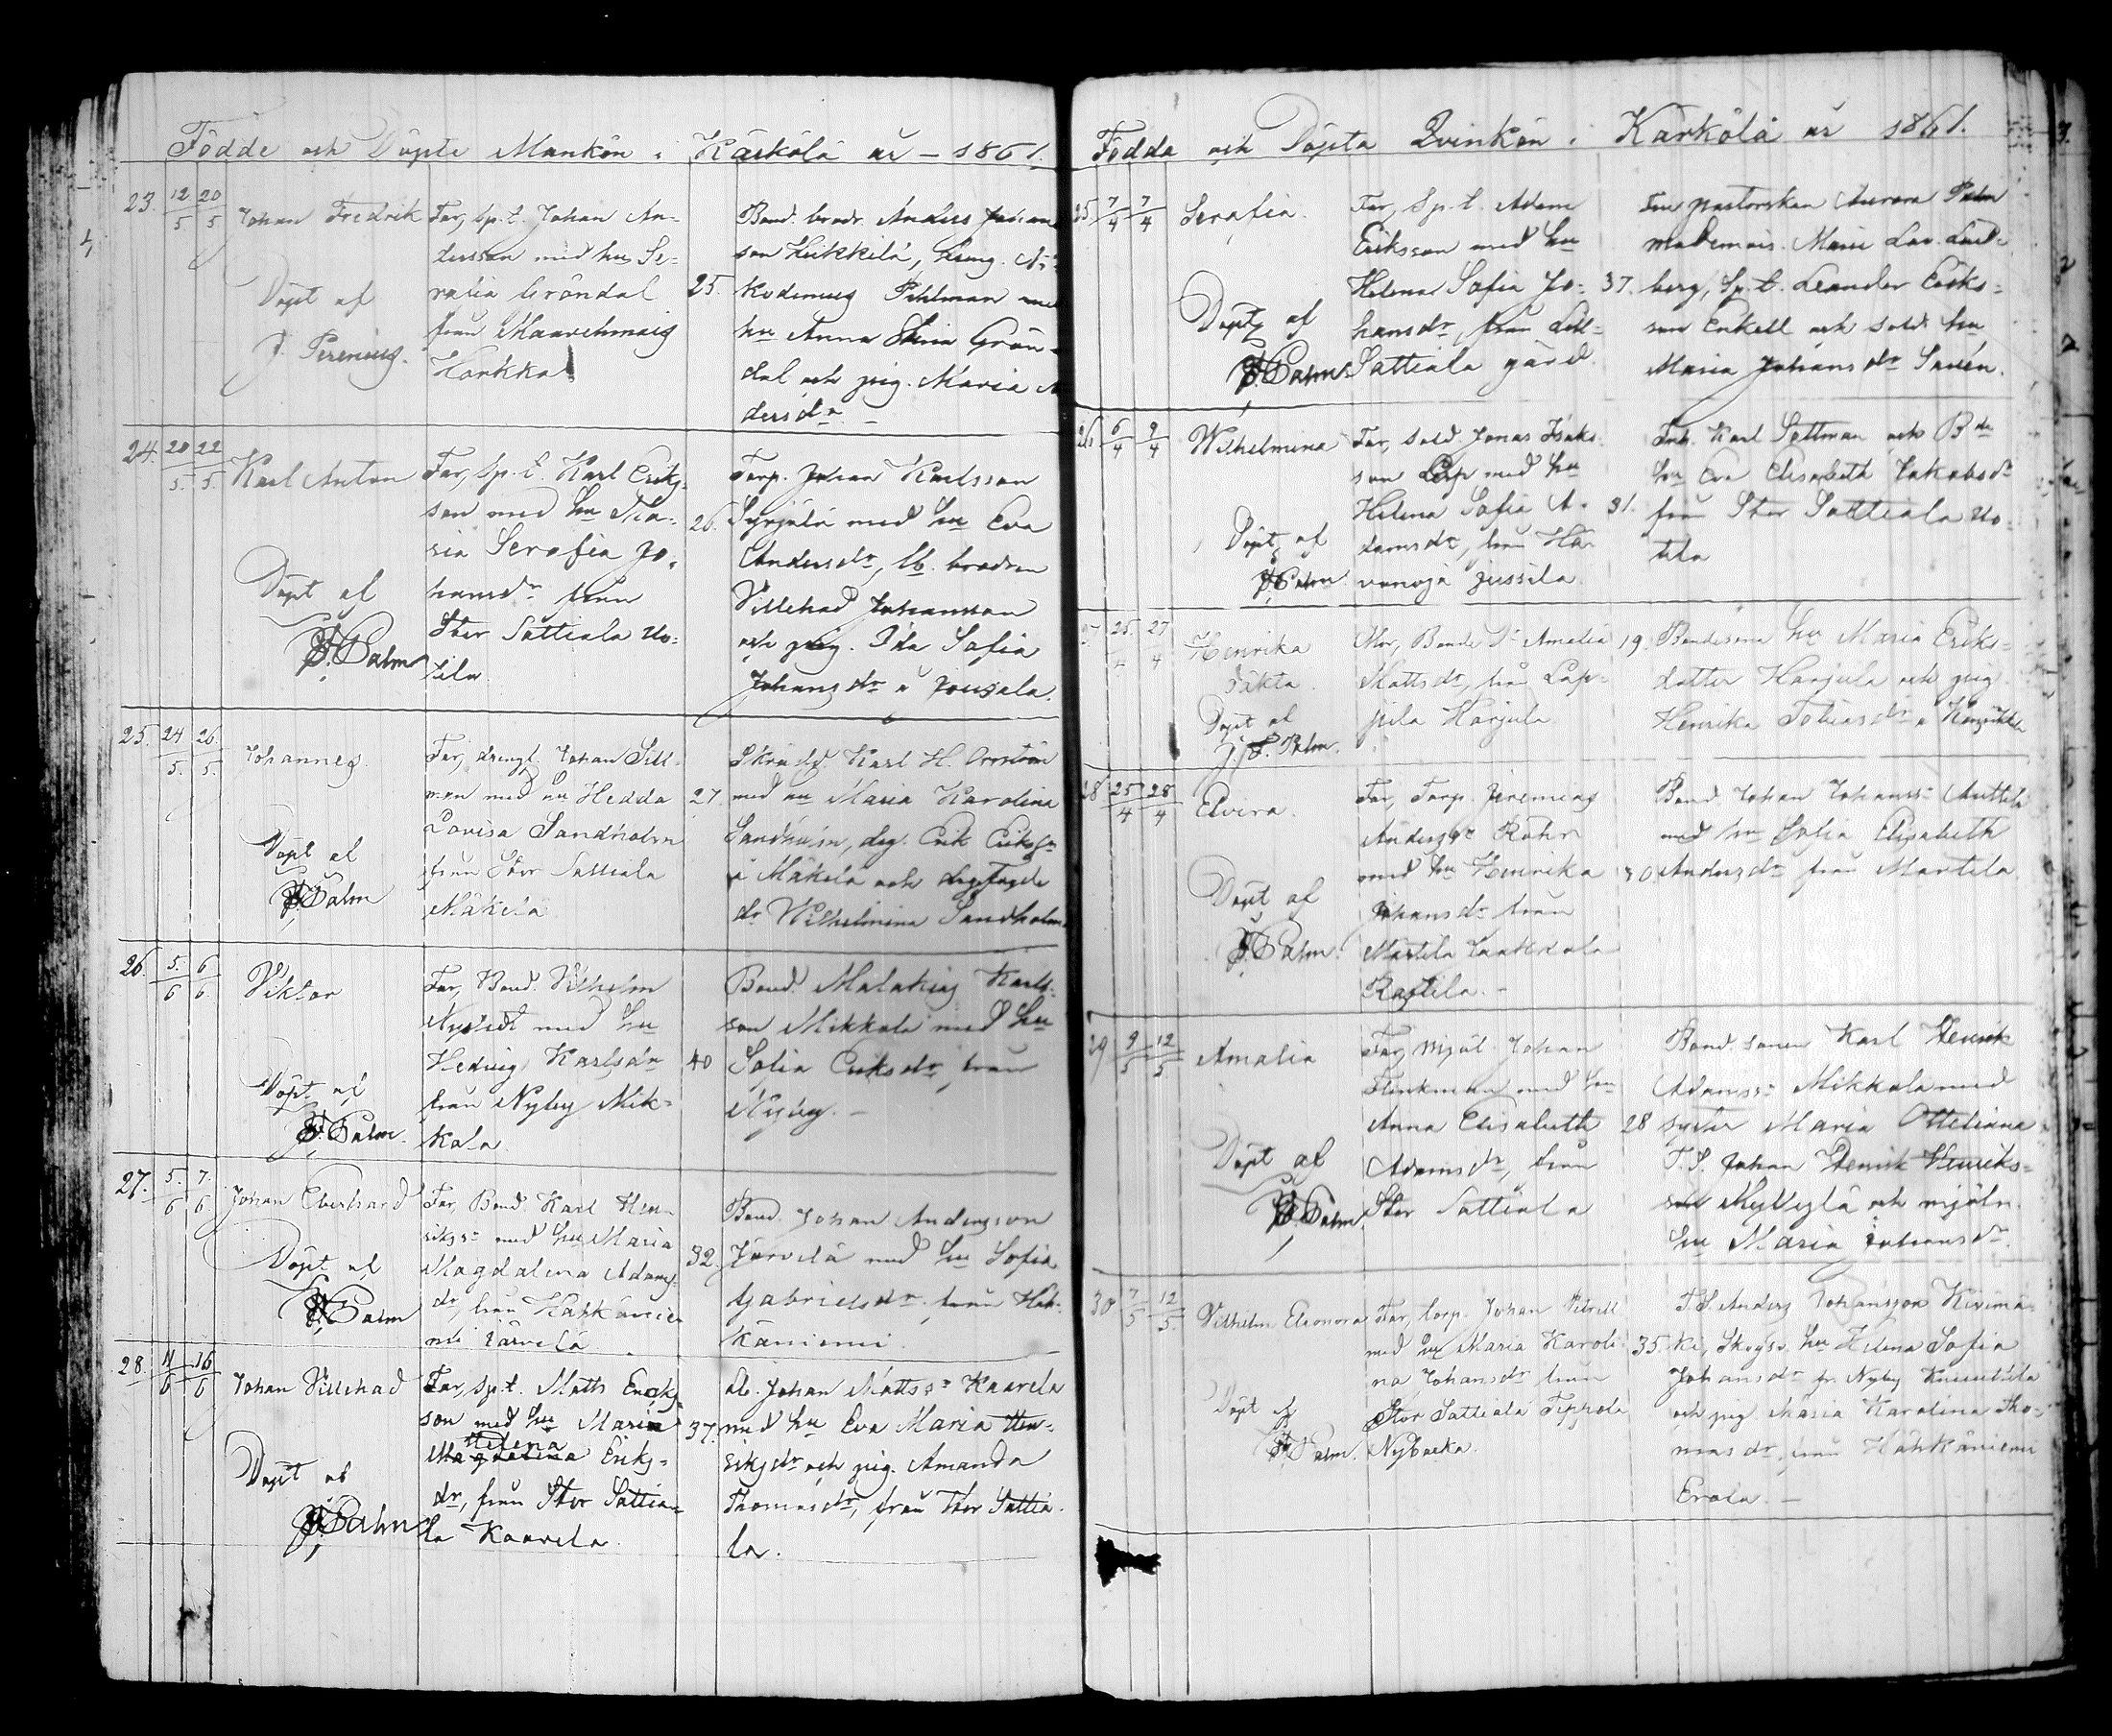 Födde och Döpte Mankön i Kärkölä år - 1861.
23. 12/5 20/5 Johan Fredrik
Döpt af
J. Perenius.
Far, sp. t. Johan An-
dersson med hu Se-
rafia Gröndal
från Maavehmais
Horkka
25.
Bond. brodr. Anders Johans
son Heikkilä,
Nikodemus Pihlman med
hu Anna Grön-
dal och pig. Maria An
dersdr. -
24. 20/5. 22/5. Karl Anton
Döpt af
J. Palm
Far, Sp. t. Karl Eriks-
son med hu Ma-
ria Serafia Jo-
hansdr från
Stor Sattiala Uo-
tila
26.
Torp. Johan Karlsson
Syrjälä med hu Eva
Andersdr, brodren
Villehad Johansson
och pig. Ida Sofia
Johansdr
25. 24/5. 26/5. Johannes
Döpt af
J. Palm
Far, drengk. Johan Sill-
man med hu Hedda
Lovisa Sandholm
från Stor Sattiala
Mäkelä
27.
Skrädd. Karl H.
med hu Maria Karolina
Sandholm, drg. Erik Eriksn
i Mäkelä och
dr Wilhelmina Sandholm
26. 5./6 6/6. Viktor
Döpt af
J. Palm.
Far, Bond. Vilhelm
med hu
Hedvig Karlsdr
från Nyby Mik-
kola.
40
Bond. Malakias Karls-
son Mikkola med hu
Sofia Eriksdr, från
Nyby. -
27. 5./6 7./6 Johan Everhard
Döpt af
J. Palm
Far, Bond. Karl Hen-
rikss. med hu Maria
Magdalena Adams-
dr, från Hähkänie-
mi Järvelä
32.
Bond. Johan Andersson
Järvelä med hu Sofia
Gabrielsdr. från Häh-
käniemi.
28. 11/6 16/6 Johan Villehad
Döpt af
J. Palm
Far, sp. t. Matts Eriks-
son med hu Maria
Helena
Magdalena Eriks-
dr, från Stor Sattia-
la Kaavela.
37.
Johan Mattss. Kaavela
med hu Eva Maria Hen-
riksdr och pig. Amanda
Thomasdr, från Stor Sattia
la.
Födda och Döpta Qvinkön i Kärkölä år 1861.
25 7/4 7/4 Serafia.
Döpt af
J. Palm
Far, Sp. t. Adam
Eriksson med hu
Helena Sofia Jo-
hansdr, från Lill-
Sattiala gård.
37.
Fru pastorskan Aurora Palm
mademois. Marie Lov. Lind-
berg, Sp. t. Leander Eriks-
son Enkell och sold. hu
Maria Johansdr
26 6/4 9/4 Wilhelmina
Döpt af
J. Palm.
Far, Sold. Jonas Isaks
son med hu
Helena Sofia A-
damsdr, från Hä-
venoja Jussila.
31.
Inh. Karl Sellman och Bde
hu Eva Elisabeth Jakobsdr
från Stor Sattiala Uo-
tila
27 25. 27/4 Henrika
oäkta
Döpt af
J. J. Palm.
Mor, Bonde dr Amalia
Mattsdr, från Lap-
pila Harjula
19.
Bondesena hu Maria Eriks-
dotter Harjula och pig.
Henrika Tobiasdr
28 25/4 28/4 Elvira.
Döpt af
J. Palm.
Far, Torp. Jeremias
Anderss.
med hu Henrika
Johansdr från
Martila Laakkola
Rastila. -
30
Bond. Johan Johanss. Anttila
med hu Sofia Elisabeth
Andersdr från Martila
29 9/5 12/5 Amalia
Döpt af
J. Palm.
Far, mjöl. Johan
Flinkman med hu
Anna Elisabeth
Adamsdr, från
Stor Sattiala
28
Bond. sonen Karl Henrik
Adamss. Mikkola med
syster Maria Ottiliana
T. S. Johan Henrik Henriks-
son och mjöln.
hu Maria Johansdr.
30 7/5 12/5. Vilhelm. Eleonora
Döpt af
J. Palm.
Far, torp. Johan
med hu Maria Karoli-
na Johansdr från
Stor Sattiala Tippola
Nybacka.
35.
T. S. Anders Johansson Kivimä-
ki, hu Helena Sofia
Johansdr fr. Nyby
och pig. Maria Karolina Tho-
masdr, från Hähkäniemi
Erola. -